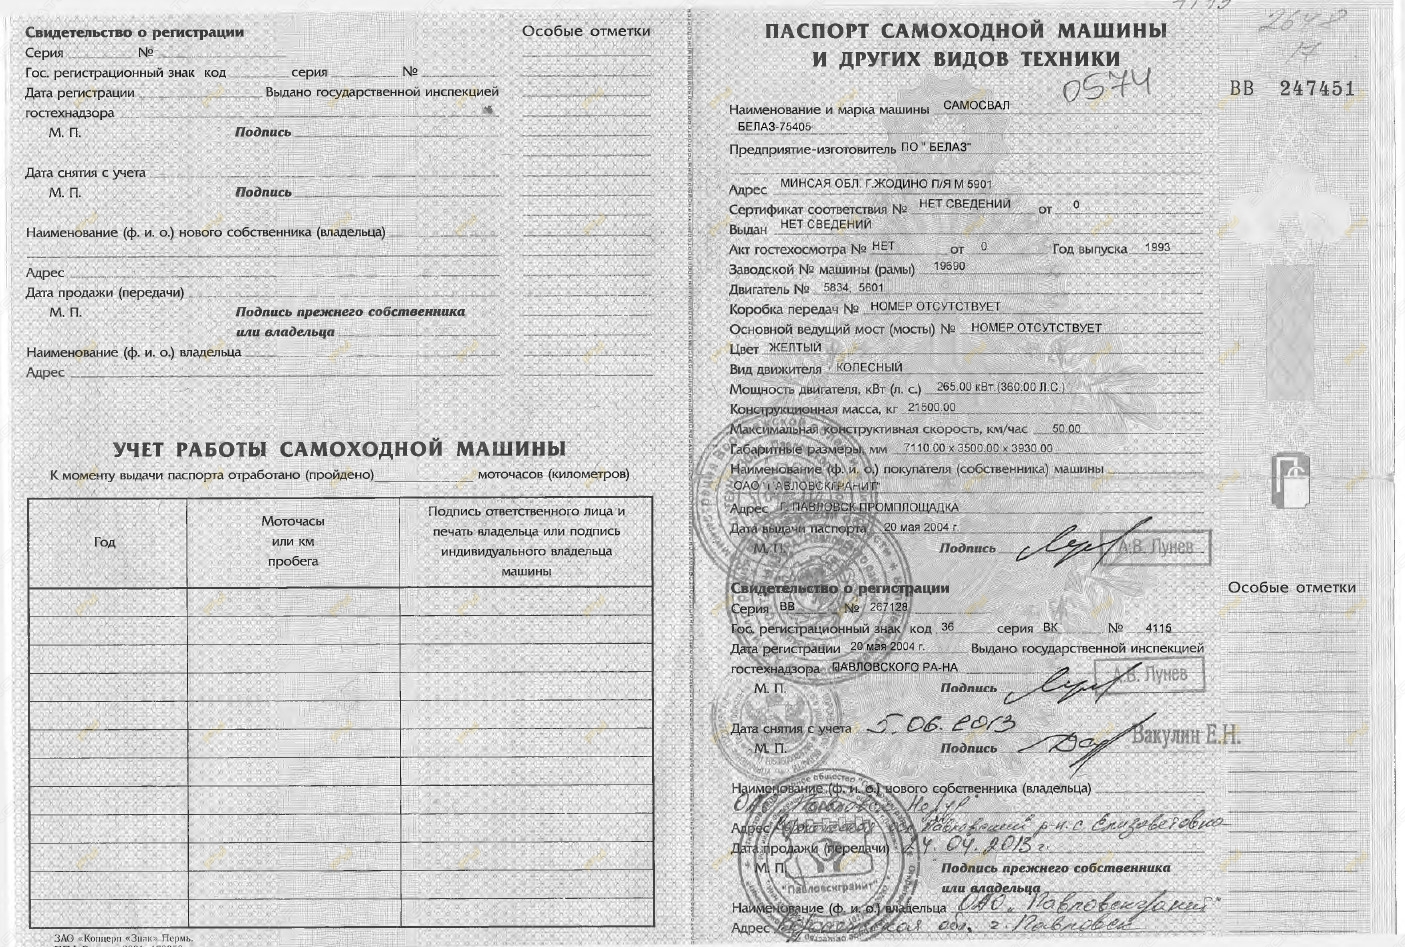 Свидетельство о регистрации
Серия № 
Гос. регистрационный знак код серия №
Дата регистрации Выдано государственной инспекцией
гостехнадзора
М. П. Подпись
Дата снятия с учета
М. П. Подпись
Наименование (ф. и. о.) нового собственника (владельца)
Адрес
Дата продажи (передачи)
М. П. Подпись прежнего собственника
или владельца
Наименование (ф. и. о.) владельца
Адрес
Особые отметки
УЧЕТ РАБОТЫ САМОХОДНОЙ МАШИНЫ
К моменту выдачи паспорта отработано (пройдено) моточасов (километров)
Год
Моточасы
или км
пробега
Подпись ответственного лица и
печать владельца или подпись
индивидуального владельца
машины
ЗАО «Концерн «Знак» Пермь.
ПАСПОРТ САМОХОДНОЙ МАШИНЫ
И ДРУГИХ ВИДОВ ТЕХНИКИ
2648
0574
ВВ 247451
Наименование и марка машины САМОСВАЛ
БЕЛАЗ-75405
Предприятие-изготовитель ПО " БЕЛАЗ"
Адрес МИНСАЯ ОБЛ. Г.ЖОДИНО П/Я М 5901
Сертификат соответствия № НЕТ СВЕДЕНИЙ от 0
Выдан НЕТ СВЕДЕНИЙ
Акт гостехосмотра № НЕТ от 0 Год выпуска 1993
Заводской № машины (рамы) 19690
Двигатель № 5834; 5601
Коробка передач № НОМЕР ОТСУТСТВУЕТ
Основной ведущий мост (мосты) № НОМЕР ОТСУТСТВУЕТ
Цвет ЖЕЛТЫЙ
Вид движителя КОЛЕСНЫЙ
Мощность двигателя, кВт (л. с.) 265.00 кВт.(360.00 Л.С.)
Конструкционная масса, кг 21500.00
Максимальная конструктивная скорость, км/час 50.00
Габаритные размеры, мм 7110.00 x 3500.00 x 3930.00
Наименование (ф. и. о.) покупателя (собственника) машины
ОАО "ПАВЛОВСКГРАНИТ"
Адрес Г. ПАВЛОВСК ПРОМПЛОЩАДКА
Дата выдачи паспорта 20 мая 2004 г.
М. П. Подпись А.В. Лунев
Свидетельство о регистрации
Серия ВВ № 267128
Гос. регистрационный знак код 36 серия ВК № 4115
Дата регистрации 20 мая 2004 г. Выдано государственной инспекцией
гостехнадзора ПАВЛОВСКОГО РА-НА
М. П. Подпись А.В. Лунев
Дата снятия с учета 5.06.2013
М. П. Подпись Вакулин Е.Н.
Наименование (ф. и. о.) нового собственника (владельца)
Адрес р-н с Елизаветовка
Дата продажи (передачи) 24.04.2013 г.
М. П. Подпись прежнего собственника
или владельца
"Павловскгранит"
Наименование (ф. и. о.) владельца ОАО „Павловскгранит"
Адрес обл. г. Павловск
Особые отметки